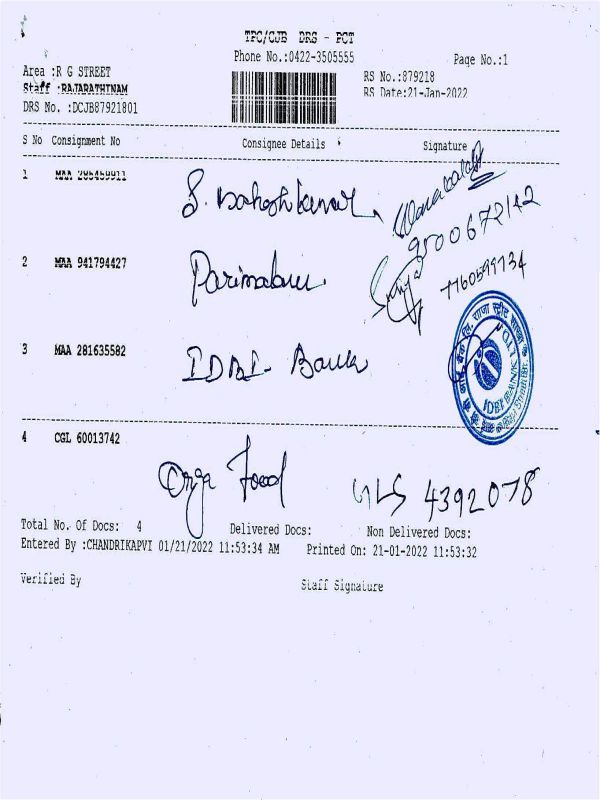 TPC/CJB DRS - PCT
Phone No.:0422-3505555
Page No.:1
Area :R G STREET
RS No.:879218
Staff :RAJARATHINAM
RS Date:21-Jan-2022
DRS No. :DCJB87921801
S No Consignment No Consignee Details Signature
1 MAA 285459911
9500672142
2 MAA 941794427
7760599734
3 MAA 281635582 IDBI - Bank
IDBI BANK LTD.
4 CGL 60013742
Food 4392078
Total No. Of Docs: 4 Delivered Docs: Non Delivered Docs:
Entered By :CHANDRIKAPVI 01/21/2022 11:53:34 AM Printed On: 21-01-2022 11:53:32
Verified By Staff Signature